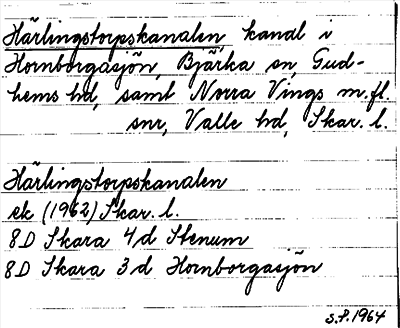 Härlingstorpskanalen kanal i
Hornborgasjön, Bjärka sn, Gud-
hems hd, samt Norra Vings m.fl.
snr, Valle hd, Skar. l.
Härlingstorpskanalen
ek (1962) Skar. l.
8D Skara 4d Stenum
8D Skara 3d Hornborgasjön
S.P. 1964